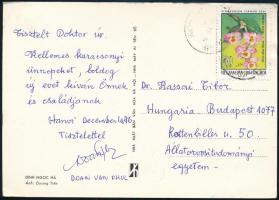 Tisztelt Doktor úr
Kellemes karácsonyi
ünnepeket, boldog
új évet kíván Önnek
és családjának
Hanoi December 1980
Tisztelettel
DOAN VAN PHUC
ĐÌNH NGỌC HÀ
Dr. Kassai Tibor
Hungaria. Budapest 1077
Rottenbiller u. 50.
Állatorvostudományi
egyetem